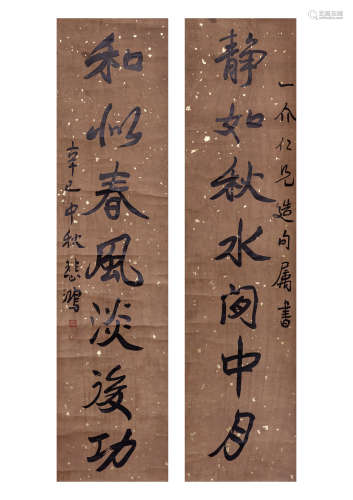 一介仁兄造句属書
静如秋水閒中月
和似春風淡後功
辛巳中秋悲鴻